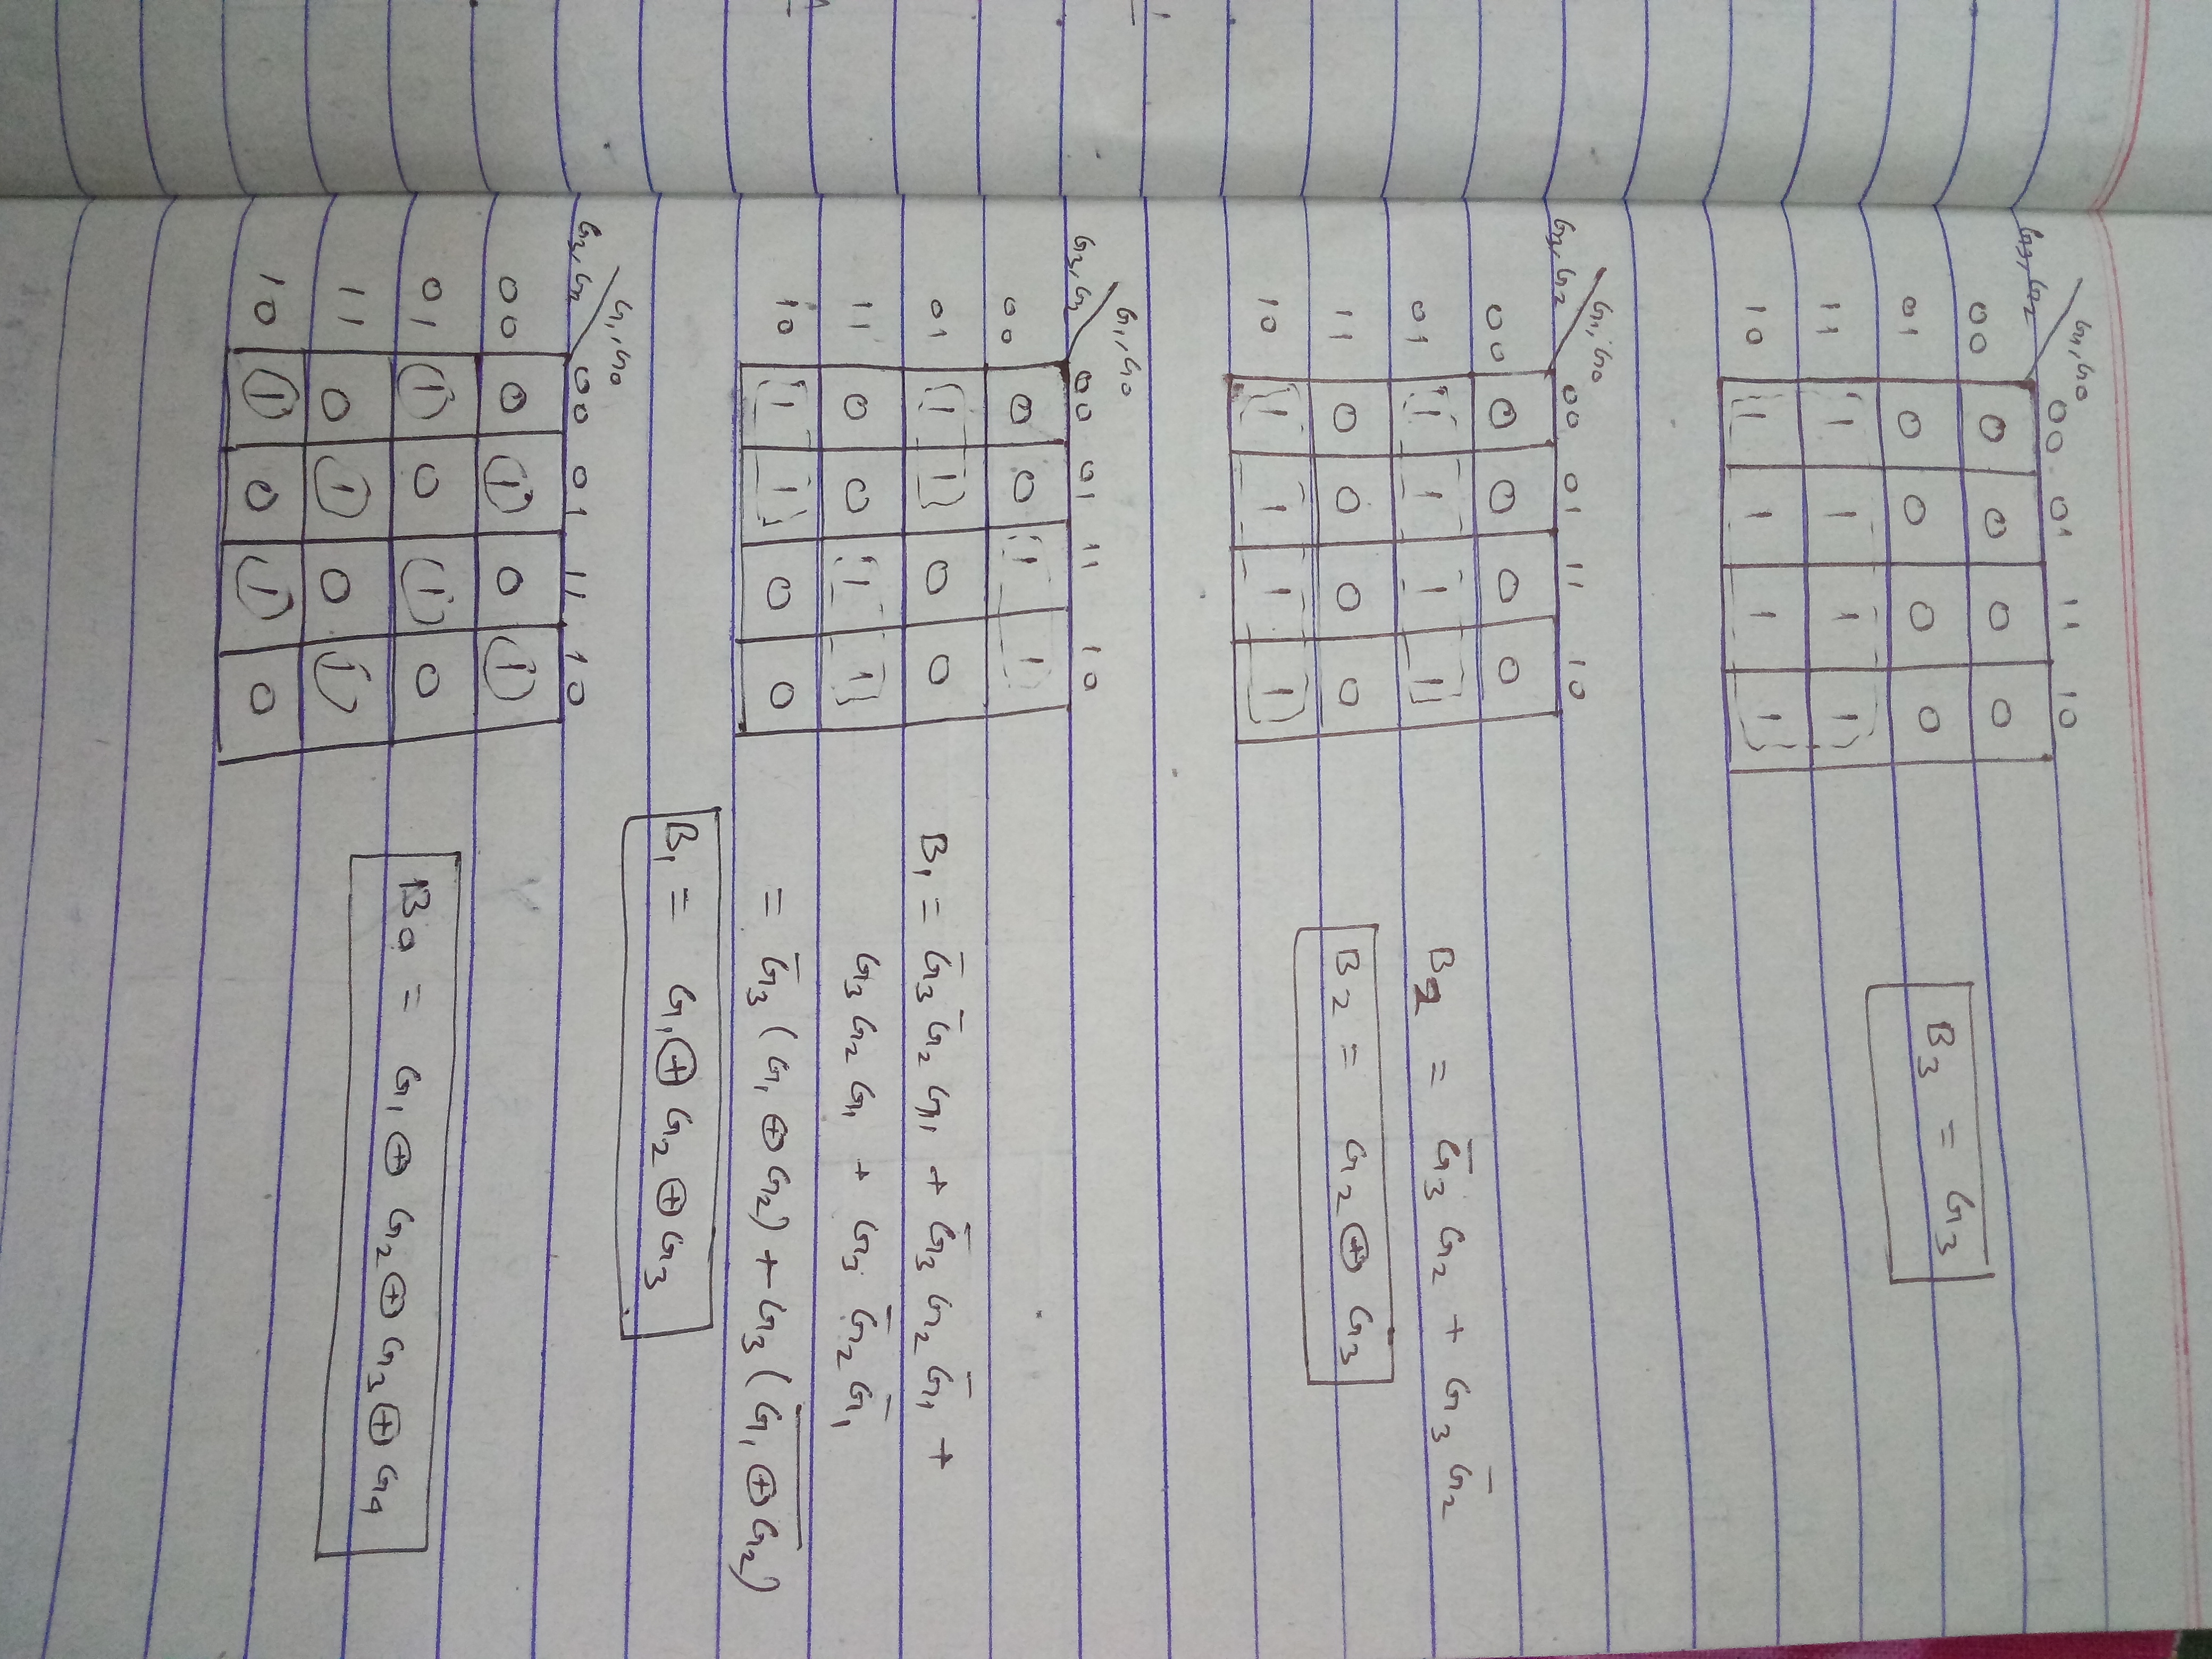 G1, G0
G3, G2 00 01 11 10
00 0 0 0 0
01 0 0 0 0
11 1 1 1 1
10 1 1 1 1
B3 = G3
G1, G0
G3, G2 00 01 11 10
00 0 0 0 0
01 1 1 1 1
11 0 0 0 0
10 1 1 1 1
B2 = G̅3 G2 + G3 G̅2
B2 = G2 ⊕ G3
G1, G0
G3, G2 00 01 11 10
00 0 0 1 1
01 1 1 0 0
11 0 0 1 1
10 1 1 0 0
B1 = G̅3 G̅2 G1 + G̅3 G2 G̅1 +
G3 G2 G1 + G3 G̅2 G̅1
= G̅3 (G1 ⊕ G2) + G3 (G̅1̅ ̅⊕̅ ̅G̅2̅)
B1 = G1 ⊕ G2 ⊕ G3
G1, G0
G3, G2 00 01 11 10
00 0 1 0 1
01 1 0 1 0
11 0 1 0 1
10 1 0 1 0
B0 = G1 ⊕ G2 ⊕ G3 ⊕ G4